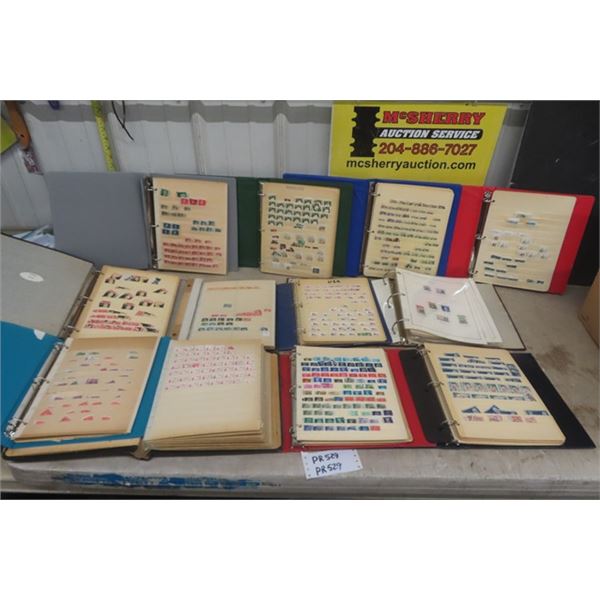 McSHERRY
AUCTION SERVICE
204-886-7027
mcsherryauction.com
USA
PR529
PR529